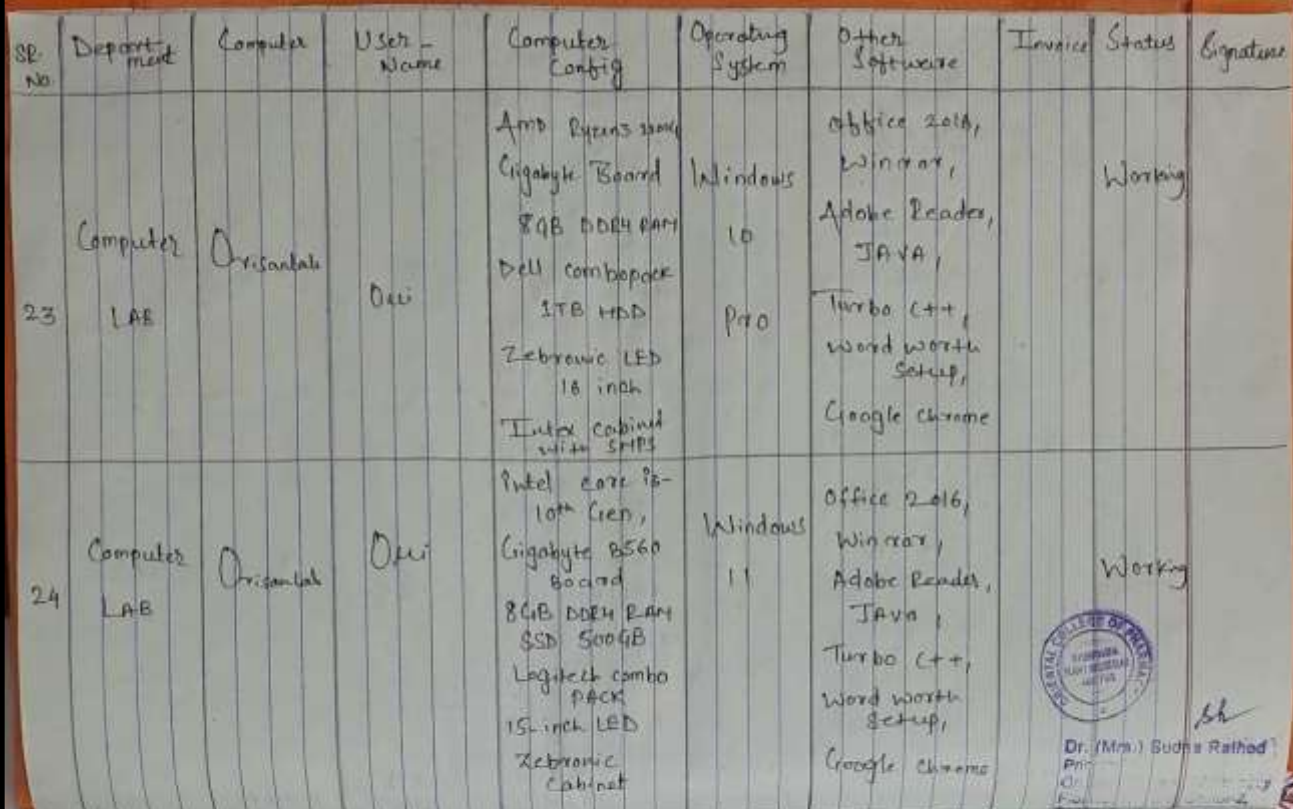 SR. No. Department Computer User-Name Computer Config Operating System Other Software Invoice Status Signature
23 Computer LAB Orisanlab Oui
AMD Ryzen 3
Gigabyte Board
8GB DDR4 RAM
Dell combopack
1TB HDD
Zebronic LED
18 inch
Intex cabinet
with SMPS
Windows
10
Pro
Office 2016,
Winrar,
Adobe Reader,
JAVA,
Turbo C++,
Word worth
Setup,
Google chrome
Working
24 Computer LAB Orisanlab Oui
Intel core i3-
10th Gen,
Gigabyte B560
Board
8GB DDR4 RAM
SSD 500GB
Logitech combo
PACK
15-inch LED
Zebronic
Cabinet
Windows
11
Office 2016,
Winrar,
Adobe Reader,
JAVA,
Turbo C++,
Word worth
Setup,
Google chrome
Working
ORIENTAL COLLEGE OF PHARMACY
Dr. (Mrs.) Sudha Rathod